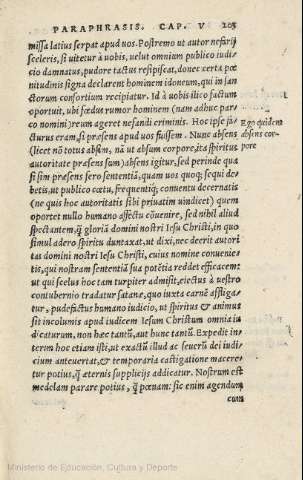 PARAPHRASIS. CAP. V 203
missa latius serpat apud uos. Postremo ut autor nefarij
sceleris, si uitetur à uobis, uelut omnium publico iudi-
cio damnatus, pudore tactus resipiscat, donec certa poe
nitudinis signa declarent hominem idoneum, qui in san
ctorum consortium recipiatur. Id à uobis ilico factum
oportuit, ubi fœdus rumor hominem (nam adhuc par-
co nomini) reum ageret nefandi criminis. Hoc ipse fa-
cturus eram, si præsens apud uos fuissem. Nunc absens
(licet nō totus absēm, nā ut absum corpore, ita spiritus
autoritate præsens sum) absens igitur, sed perinde qua
si sim præsens fero sententiā, quam uos quoq; sequi de-
betis, ut publico cœtu, frequentiq; conuentu decernatis
(ne quis hoc autoritatis sibi priuatim uindicet) quem
oportet nullo humano affectu cōuenire, sed nihil aliud
spectantem, q̄ gloriā domini nostri Iesu Christi, in quo
simul adero spiritu duntaxat, ut dixi, nec deerit autori
tas domini nostri Iesu Christi, cuius nomine conuenie-
tis, qui nostram sententiā sua potētia reddet efficacem:
ut qui scelus hoc tam turpiter admisit, eiectus à uestro
contubernio tradatur satanæ, quo iuxta carnē affliga-
tur, pudefactus humano iudicio, ut spiritus & animus
sit incolumis apud iudicem Iesum Christum omnia iu
dicaturum, non hæc tantū, aut hunc tantū. Expedit in-
terim hoc etiam isti, ut exactū illud ac seuerū dei iudi-
cium anteuertat, & temporaria castigatione macere-
tur potius, q̄ æternis supplicijs addicatur. Nostrum est
medelam parare potius, q̄ pœnam: sic enim agendum
cum
Ego quidem
absens cor-
pore
Ministerio de Educación, Cultura y Deporte